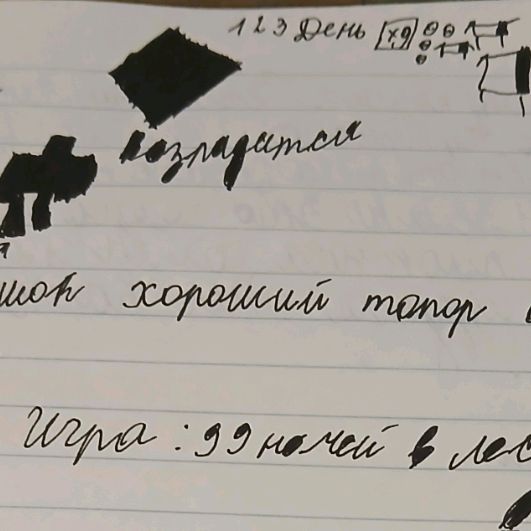 123 День [x,9]
возрадится
шок хороший топор
Игра: 99 ночей в лес